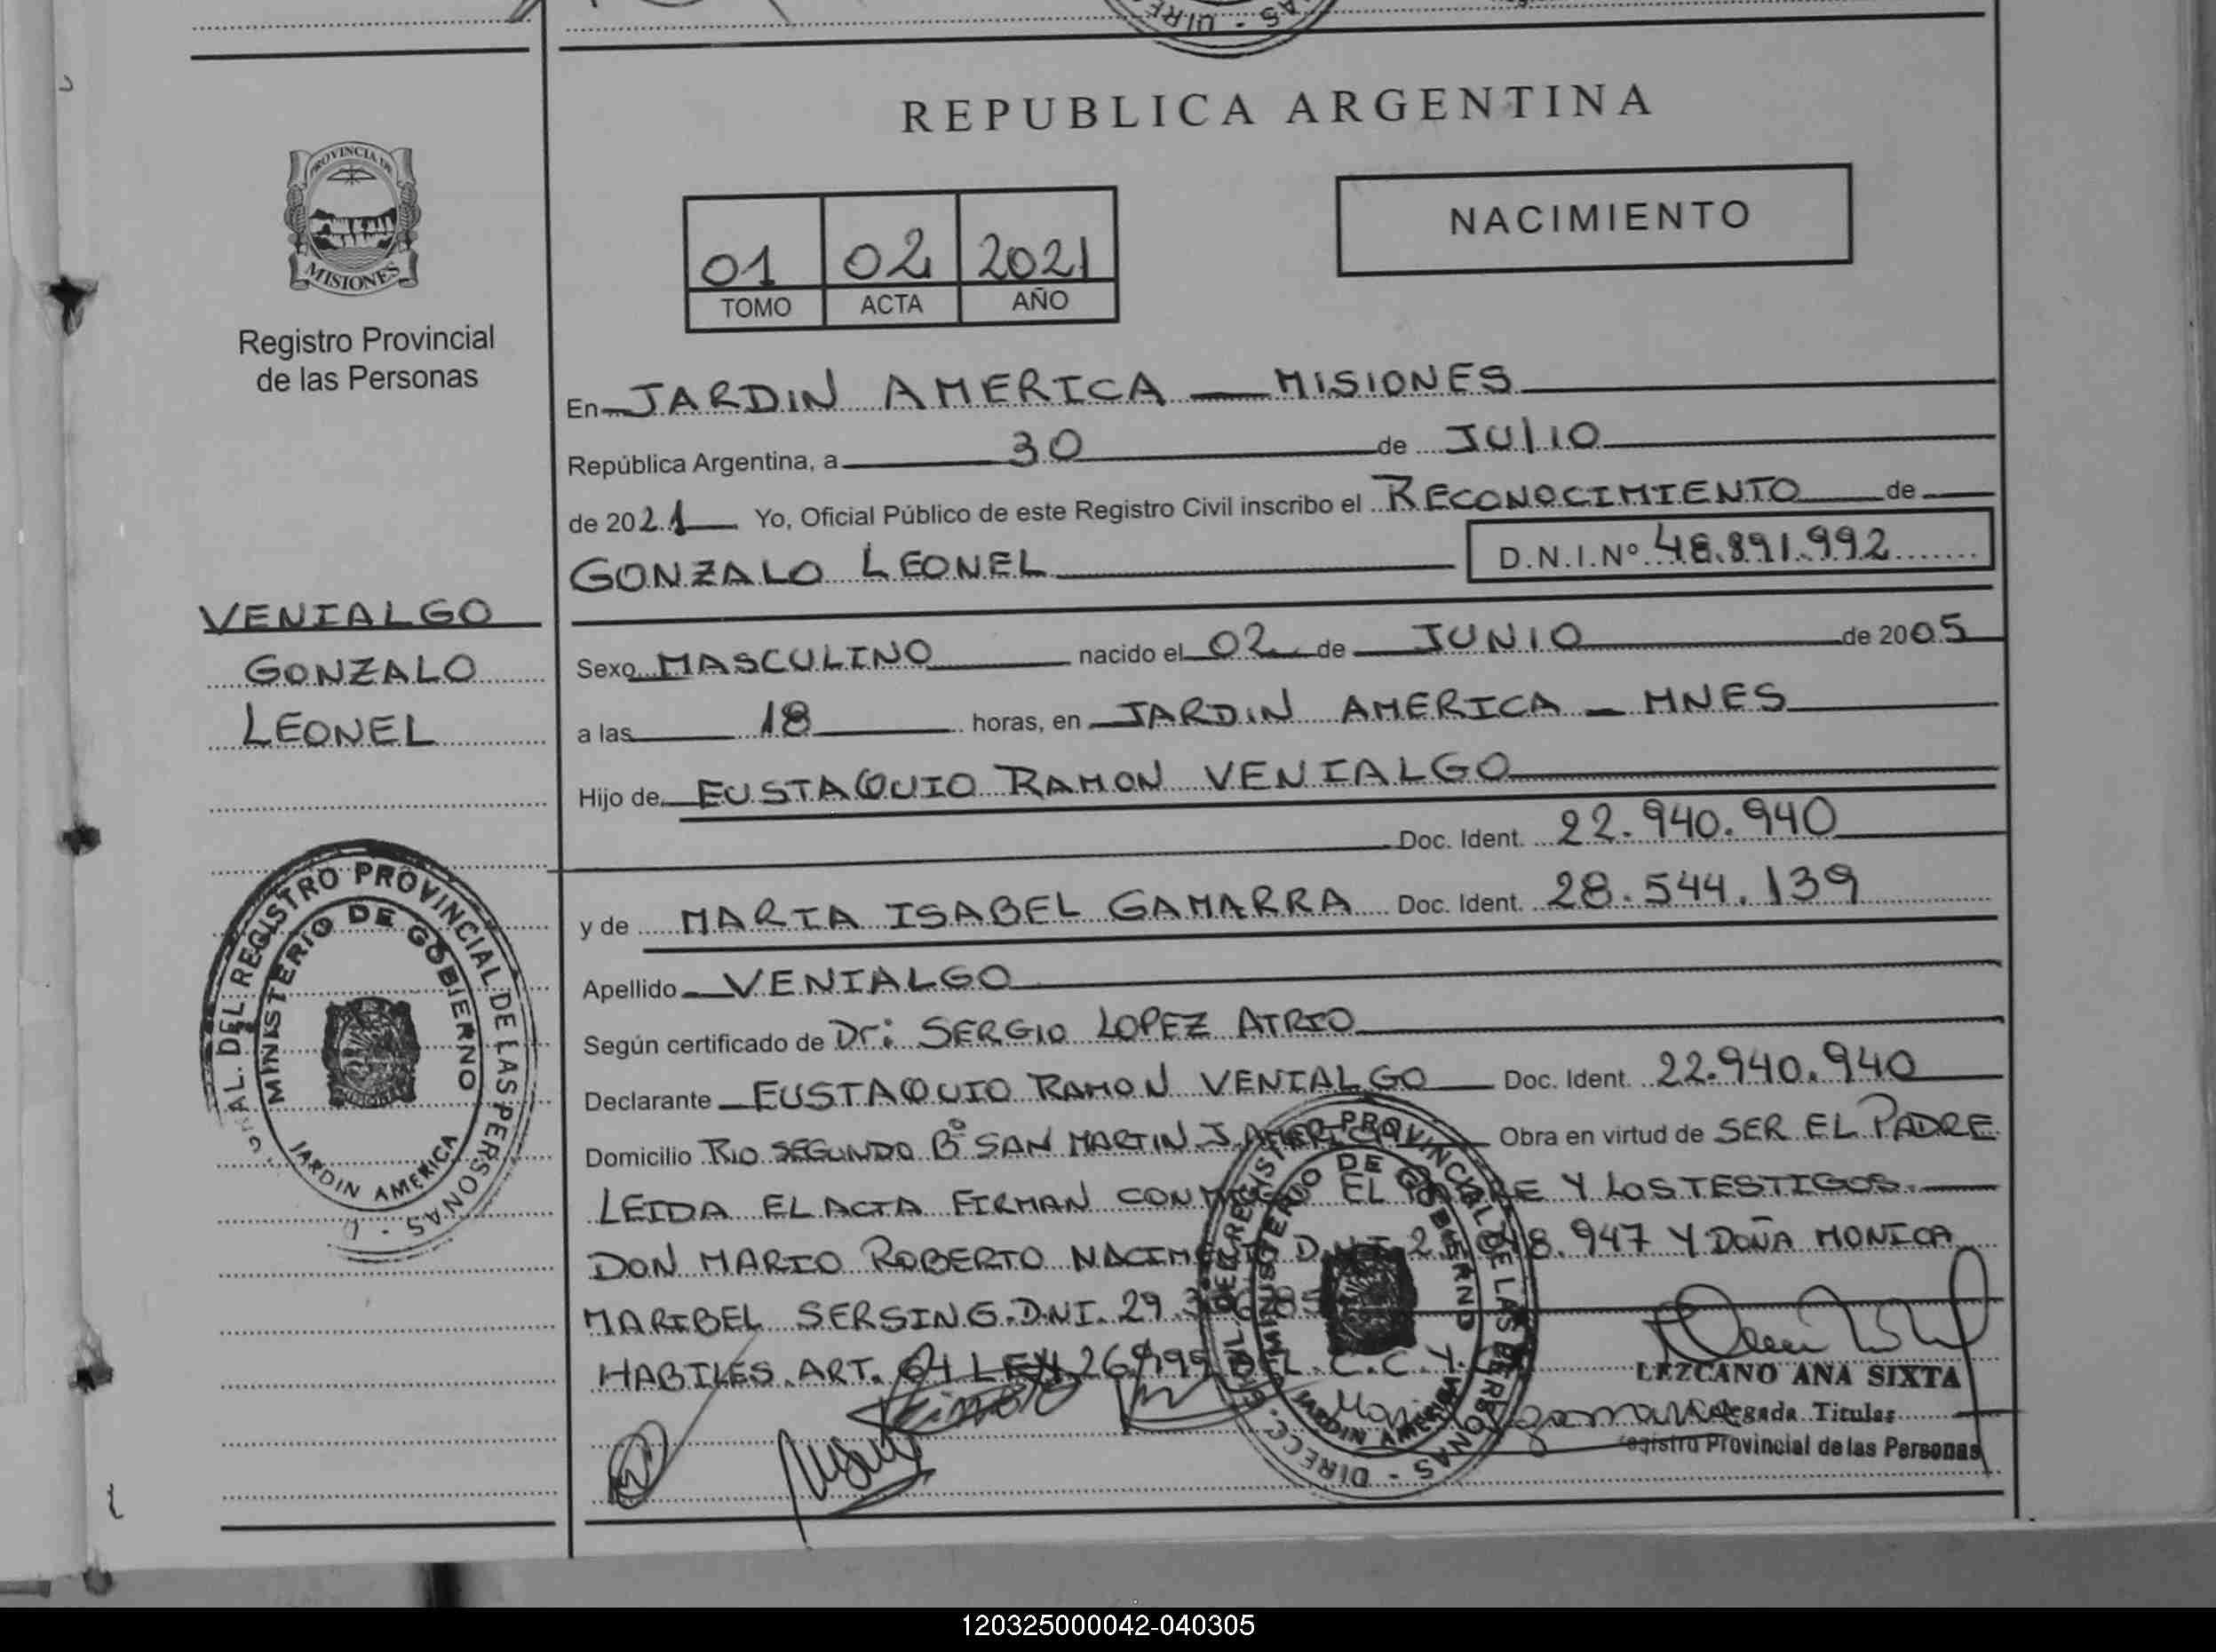 REPUBLICA ARGENTINA
PROVINCIA DE
MISIONES
Registro Provincial
de las Personas
NACIMIENTO
01 02 2021
TOMO ACTA AÑO
En JARDIN AMERICA — MISIONES
República Argentina, a 30 de JULIO
de 2021 Yo, Oficial Público de este Registro Civil inscribo el RECONOCIMIENTO de
GONZALO LEONEL D.N.I.Nº 48.891.992
VENIALGO
GONZALO
LEONEL
Sexo MASCULINO nacido el 02 de JUNIO de 2005
a las 18 horas, en JARDIN AMERICA — MNES
Hijo de EUSTAQUIO RAMON VENIALGO
Doc. Ident. 22.940.940
y de MARIA ISABEL GAMARRA Doc. Ident. 28.544.139
Apellido VENIALGO
Según certificado de Dr: SERGIO LOPEZ ATRIO
Declarante EUSTAQUIO RAMON VENIALGO Doc. Ident. 22.940.940
Domicilio RIO SEGUNDO Bº SAN MARTIN J. AMERICA Obra en virtud de SER EL PADRE
LEIDA EL ACTA FIRMAN EL Y LOS TESTIGOS.
DON MARIO ROBERTO 947 Y DOÑA MONICA
MARIBEL SERSING. DNI. 29.
HABILES. ART. C.C.Y.
REGISTRO PROVINCIAL DE LAS PERSONAS
MINISTERIO DE GOBIERNO
JARDIN AMERICA
LEZCANO ANA SIXTA
Titular
Registro Provincial de las Personas
120325000042-040305